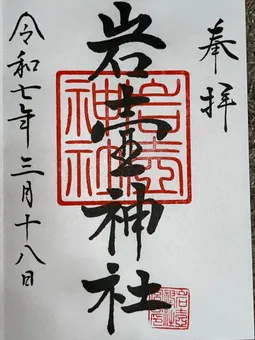 奉拝
岩壷神社
令和七年三月十八日
岩壷神社